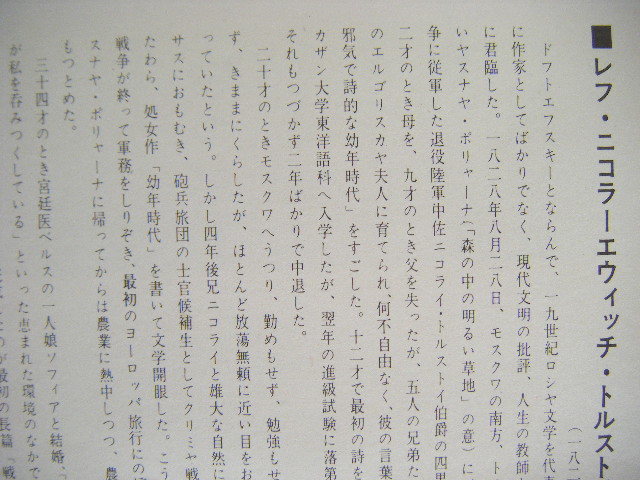 ■レフ・ニコラーエウィッチ・トルスト
(一八二
ドフトエフスキーとならんで、一九世紀ロシヤ文学を代表
に作家としてばかりでなく、現代文明の批評、人生の教師と
に君臨した。一八二八年八月二八日、モスクワの南方、ト
いヤスナヤ・ポリャーナ(「森の中の明るい草地」の意)に
争に従軍した退役陸軍中佐ニコライ・トルストイ伯爵の四男
二才のとき母を、九才のとき父を失ったが、五人の兄弟た
のエルゴリスカヤ夫人に育てられ、何不自由なく、彼の言葉
邪気で詩的な幼年時代」をすごした。十二才で最初の詩を
カザン大学東洋語科へ入学したが、翌年の進級試験に落第
それもつづかず二年ばかりで中退した。
二十才のときモスクワへうつり、勤めもせず、勉強もせ
ず、きままにくらしたが、ほとんど放蕩無頼に近い目をお
っていたという。しかし四年後兄ニコライと雄大な自然に
サスにおもむき、砲兵旅団の士官候補生としてクリミヤ戦
たわら、処女作「幼年時代」を書いて文学開眼した。こう
戦争が終って軍務をしりぞき、最初のヨーロッパ旅行にのぼ
スナヤ・ポリャーナに帰ってからは農業に熱中しつつ、農
もつとめた。
三十四才のとき宮廷医ベルスの一人娘ソフィアと結婚、
が私を呑みつくしている」といった恵まれた環境のなかで
のが最初の長篇「戦